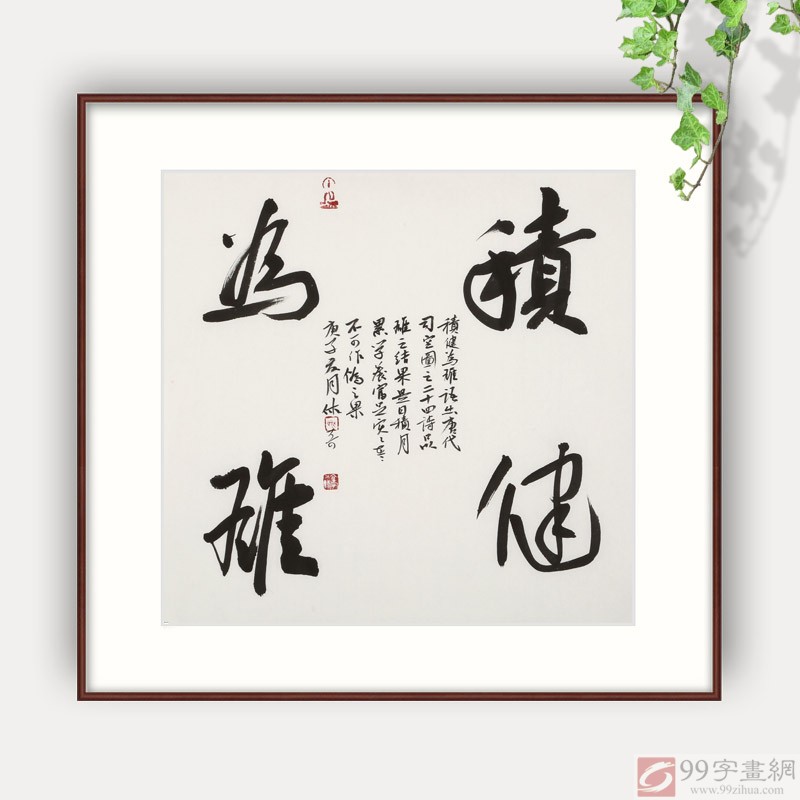 積健
為雄
積健為雄語出唐代
司空圖之二十四詩品
雄之結果是日積月
累學養富足寅之
不可作偽之果
庚子夏月
99字畫網
www.99zihua.com